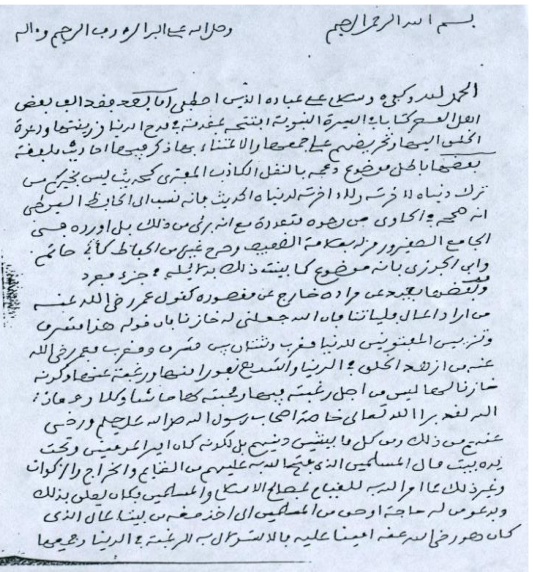 بسم الله الرحمن الرحيم وصل الله على البر الرءوف الرحيم وءاله
الحمد لله وكفى وسلام على عباده الذين اصطفى اما بعد فقد الف بعض
اهل العصر كتابا في السيرة النبوية افتتحه بمقدمة في مدح الدنيا وزينتها ودعوة
الخلق اليها وتحريضهم على جمعها والاعتناء بها ذكر فيها احاديث ملفقة
بعضها باطل موضوع ودعمه بالنقل الكاذب المفترى كحديث ليس بخيركم من
ترك دنياه لآخرته ولا آخرته لدنياه الحديث فانه نسب الى الحافظ السيوطي
انه صححه في الحاوي من وجوه متعددة مع انه برئ من ذلك بل اورده في
الجامع الصغير ورمز له بعلامة الضعيف وصرح غيره من الحفاظ كأبي حاتم
وابن الجوزي بانه موضوع كما بينت ذلك بدلائله في جزء مفرد
وبعضها بعيد عن مراده خارج عن مقصوده كقول عمر رضي الله عنه
من اراد المال فلياتنا فان الله جعلني له خازنا فان قوله هذا مشرق
وتزيين المفتونين للدنيا مغرب وشتان بين مشرق ومغرب فعمر رضي الله
عنه من ازهد الخلق في الدنيا واشدهم نفورا منها ورغبة عنها وكونه
خازنا لها ليس من اجل رغبته فيها ومحبته لها حاشا وكلا ومعاذ
الله لقد برا الله تعالى خاصة اصحاب رسول الله صلى الله عليه وسلم ورضي
عنهم من ذلك ومن كل ما ينقص دينهم بل لكونه كان امير المومنين وتحت
يده بيت مال المسلمين الذي فتح الله به عليهم من الغنائم والخراج والزكوات
وغير ذلك مما امر الله به للقيام بمصالح الاسلام والمسلمين فكان يعلن بذلك
ويدعو من له حاجة او حق من المسلمين الى اخذ حقه من بيت المال الذي
كان هو رضي الله عنه امينا عليه بالاستدلال به للرغبة في الدنيا وجمعها